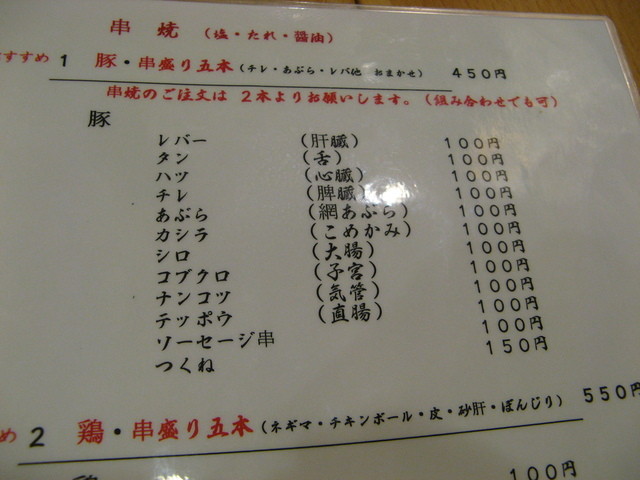 串 焼 (塩・たれ・醤油)
すすめ 1 豚・串盛り五本 (チレ・あぶら・レバ他 おまかせ) 450円
串焼のご注文は 2本よりお願いします。(組み合わせでも可)
豚
レバー (肝臓) 100円
タン (舌) 100円
ハツ (心臓) 100円
チレ (脾臓) 100円
あぶら (網あぶら) 100円
カシラ (こめかみ) 100円
シロ (大腸) 100円
コブクロ (子宮) 100円
ナンコツ (気管) 100円
テッポウ (直腸) 100円
ソーセージ串 100円
つくね 150円
め 2 鶏・串盛り五本 (ネギマ・チキンボール・皮・砂肝・ぼんじり) 550円
100円